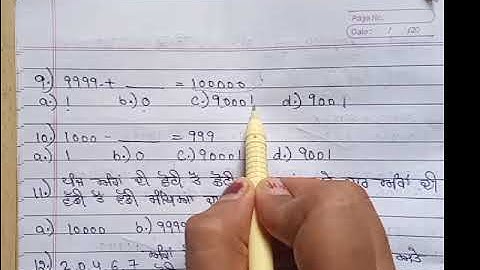 Page No.
Date: / /20
9.) 9999 + ___ = 100000
a.) 1 b.) 0 c.) 90001 d.) 9001
10.) 1000 - ___ = 999
a.) 1 b.) 0 c.) 90001 d.) 9001
11.) ਪੰਜ ਅੰਕਾਂ ਦੀ ਛੋਟੀ ਤੋਂ ਛੋਟੀ ਚਾਰ ਅੰਕਾਂ ਦੀ
ਵੱਡੀ ਤੋਂ ਵੱਡੀ ਸੰਖਿਆ ਦਾ
a.) 10000 b.) 9999
12.) 20467